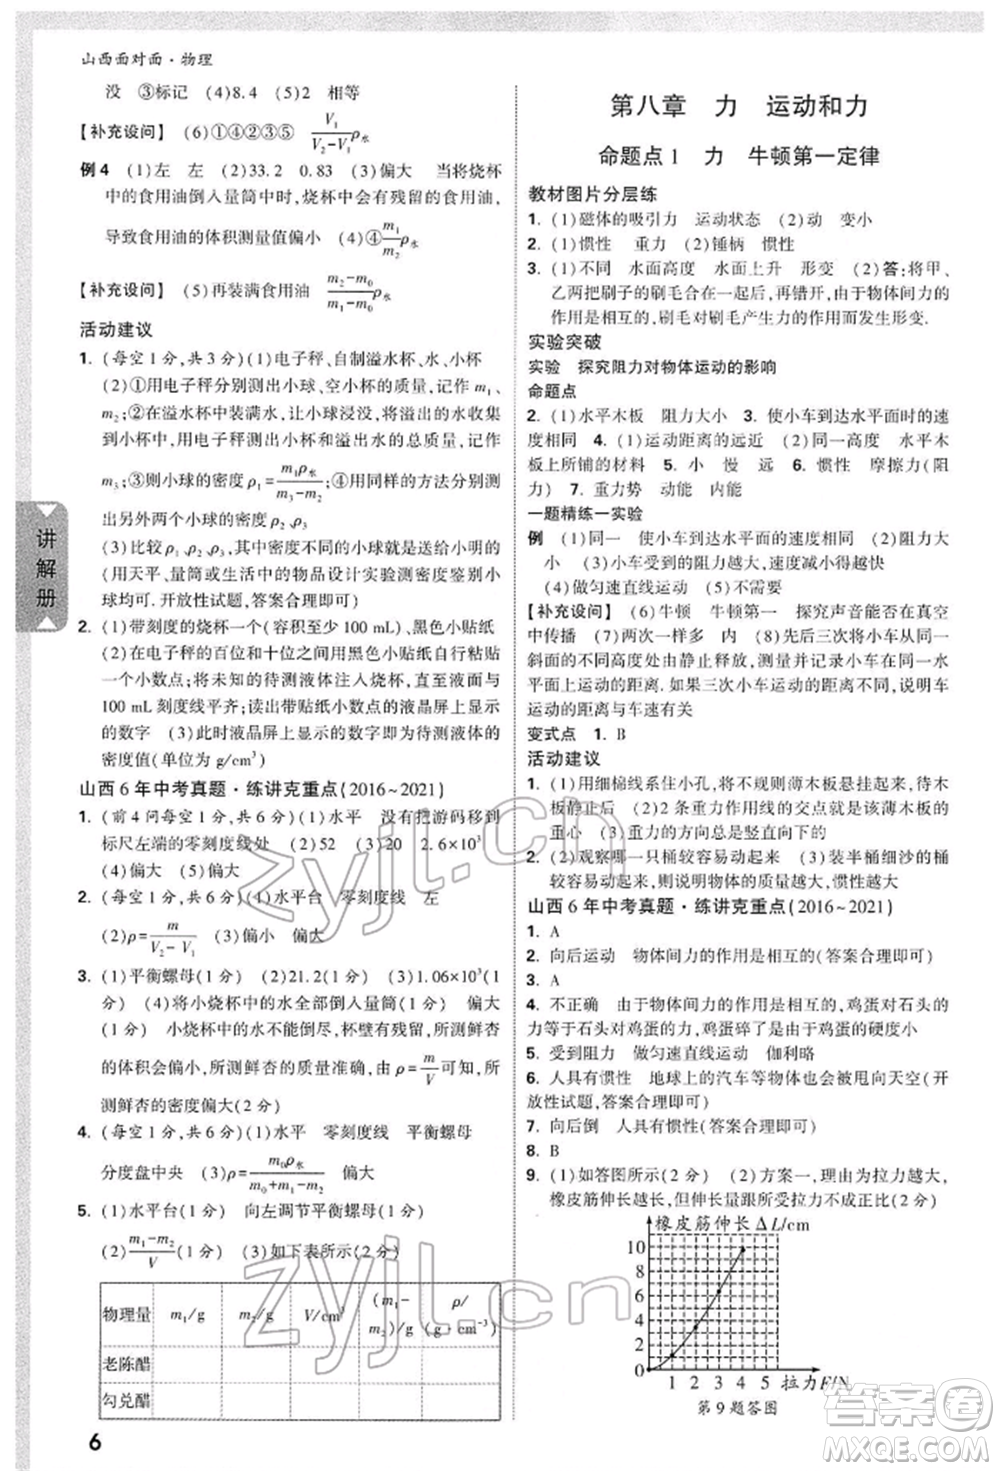 山西面对面·物理
没 ③标记 (4)8.4 (5)2 相等
【补充设问】(6)①④②③⑤ V₁/(V₂-V₁)ρ水
例4 (1)左 左 (2)33.2 0.83 (3)偏大 将烧杯
中的食用油倒入量筒中时,烧杯中会有残留的食用油,
导致食用油的体积测量值偏小 (4)④m₁/m₂ρ水
【补充设问】(5)再装满食用油 (m₂-m₀)/(m₁-m₀)ρ水
活动建议
1. (每空1分,共3分)(1)电子秤,自制溢水杯、水、小杯
(2)①用电子秤分别测出小球、空小杯的质量,记作m₁、
m₂;②在溢水杯中装满水,让小球浸没,将溢出的水收集
到小杯中,用电子秤测出小杯和溢出水的总质量,记作
m₃;③小球的密度ρ₁=m₁ρ水/(m₃-m₂);④用同样的方法分别
测出另外两个小球的密度ρ₂、ρ₃
(3)比较ρ₁、ρ₂、ρ₃,其中密度不同的小球就是送给小明的
(用天平、量筒或生活中的物品设计实验测密度鉴别小
球均可.开放性试题,答案合理即可)
2. (1)带刻度的烧杯一个(容积至少100 mL),黑色小贴纸
(2)在电子秤的百位和十位之间用黑色小贴纸粘贴
一个小数点;将未知的待测液体注入烧杯,使液面与
100 mL刻度线平齐;读出带贴纸小数点的液晶屏上显
示的数字 (3)此时液晶屏上显示的数字即为待测液体
密度值(单位为g/cm³)
山西6年中考真题·练讲克重点(2016~2021)
1. (前4问每空1分,共6分)(1)水平 没有把游码移到
标尺左端的零刻度线处 (2)52 (3)20 2.6×10³
(4)偏大 (5)偏大
2. (每空1分,共6分)(1)水平 零刻度线 左
(2)ρ=m/(V₂-V₁) (3)偏小 偏大
3. (1)平衡螺母(1分) (2)21.2(1分) (3)1.06×10³(1
分) (4)将小烧杯中的水全部倒入量筒(1分) 偏大
(1分) 小烧杯中的水不能倒尽,杯壁有残留,使所测鲜杏
的体积会偏小;所测鲜杏的质量准确,根据ρ=m/V可知,所
测鲜杏的密度偏大(2分)
4. (每空1分,共6分)(1)水平 零刻度线 平衡螺母
分度盘中央 (3)ρ=m₀ρ水/(m₀+m₁-m₂) 偏大
5. (1)水平台(1分) 向左调节平衡螺母(1分)
(2)(m₁-m₂)/V(1分) (3)如下表所示(2分)
物理量 m₁/g m₂/g V/cm³ (m₁-m₂)/g ρ/(g·cm⁻³)
老陈醋
勾兑醋
6
讲解册
第八章 力 运动和力
命题点1 力 牛顿第一定律
教材图片分层练
1. (1)磁体的吸引力 运动状态 (2)动 变小
2. (1)惯性 重力 (2)锤柄 惯性
3. (1)不同 水面高度 水面上升 形变 (2)答:将甲、
乙两把刷子的刷毛粘合在一起后,再错开,由于物体间力的
作用是相互的,刷毛对刷毛产生力的作用后发生形变.
实验突破
实验 探究阻力对物体运动的影响
命题点
2. (1)水平木板 阻力大小 3. 使小车到达水平面时的速
度相同 4. (1)运动距离的远近 (2)同一高度 水平木
板上所铺的材料 5. 小 慢 远 6. 惯性 摩擦力(阻
力) 7. 重力势 动能 内能
一题精练一实验
例 (1)同一 使小车到达水平面的速度相同 (2)越
小 (3)小车受到的阻力越大,速度减小得越快
(4)做匀速直线运动 (5)不需要
【补充设问】(6)牛顿 牛顿第一 探究声音能否在真空
中传播 (7)两次一样多 内 (8)先后三次将小车从同一
斜面的不同高度处由静止释放,测量并记录小车在同一
水平面上运动的距离. 如果三次小车运动距离不同,说明车
运动的距离与车速有关
变式点 1. B
活动建议
1. (1)用细棉线系住小孔,将薄木板悬挂起来,待木
板静止后 (2)2条重力作用线的交点就是该薄木板的
重心 (3)重力的方向总是竖直向下的
2. (2)观察哪一只桶较容易被推动 (3)装半桶细沙的桶
较容易被推动,则说明物体的质量越大,惯性越大
山西6年中考真题·练讲克重点(2016~2021)
1. A
2. 向后运动 物体间力的作用是相互的(答案合理即可)
3. A
4. 不正确 由于物体间力的作用是相互的,鸡蛋对石头的
力等于石头对鸡蛋的力,鸡蛋碎了是由于鸡蛋的硬度小
5. 受到阻力 做匀速直线运动 伽利略
6. 人具有惯性 地球上的汽车等物体也会甩向天空(开
放性试题,答案合理即可)
7. 向后倒 人具有惯性(答案合理即可)
8. B
9. (1)如答图所示(2分) (2)方案一,理由为拉力越大,
橡皮筋伸长越长,但伸长量跟所受拉力不成正比(2分)
橡皮筋伸长ΔL/cm
10
8
6
4
2
0 1 2 3 4 5 拉力F/N
第9题答图
zyjl.cn
zyjl.cn
答案圈
MXQE.COM